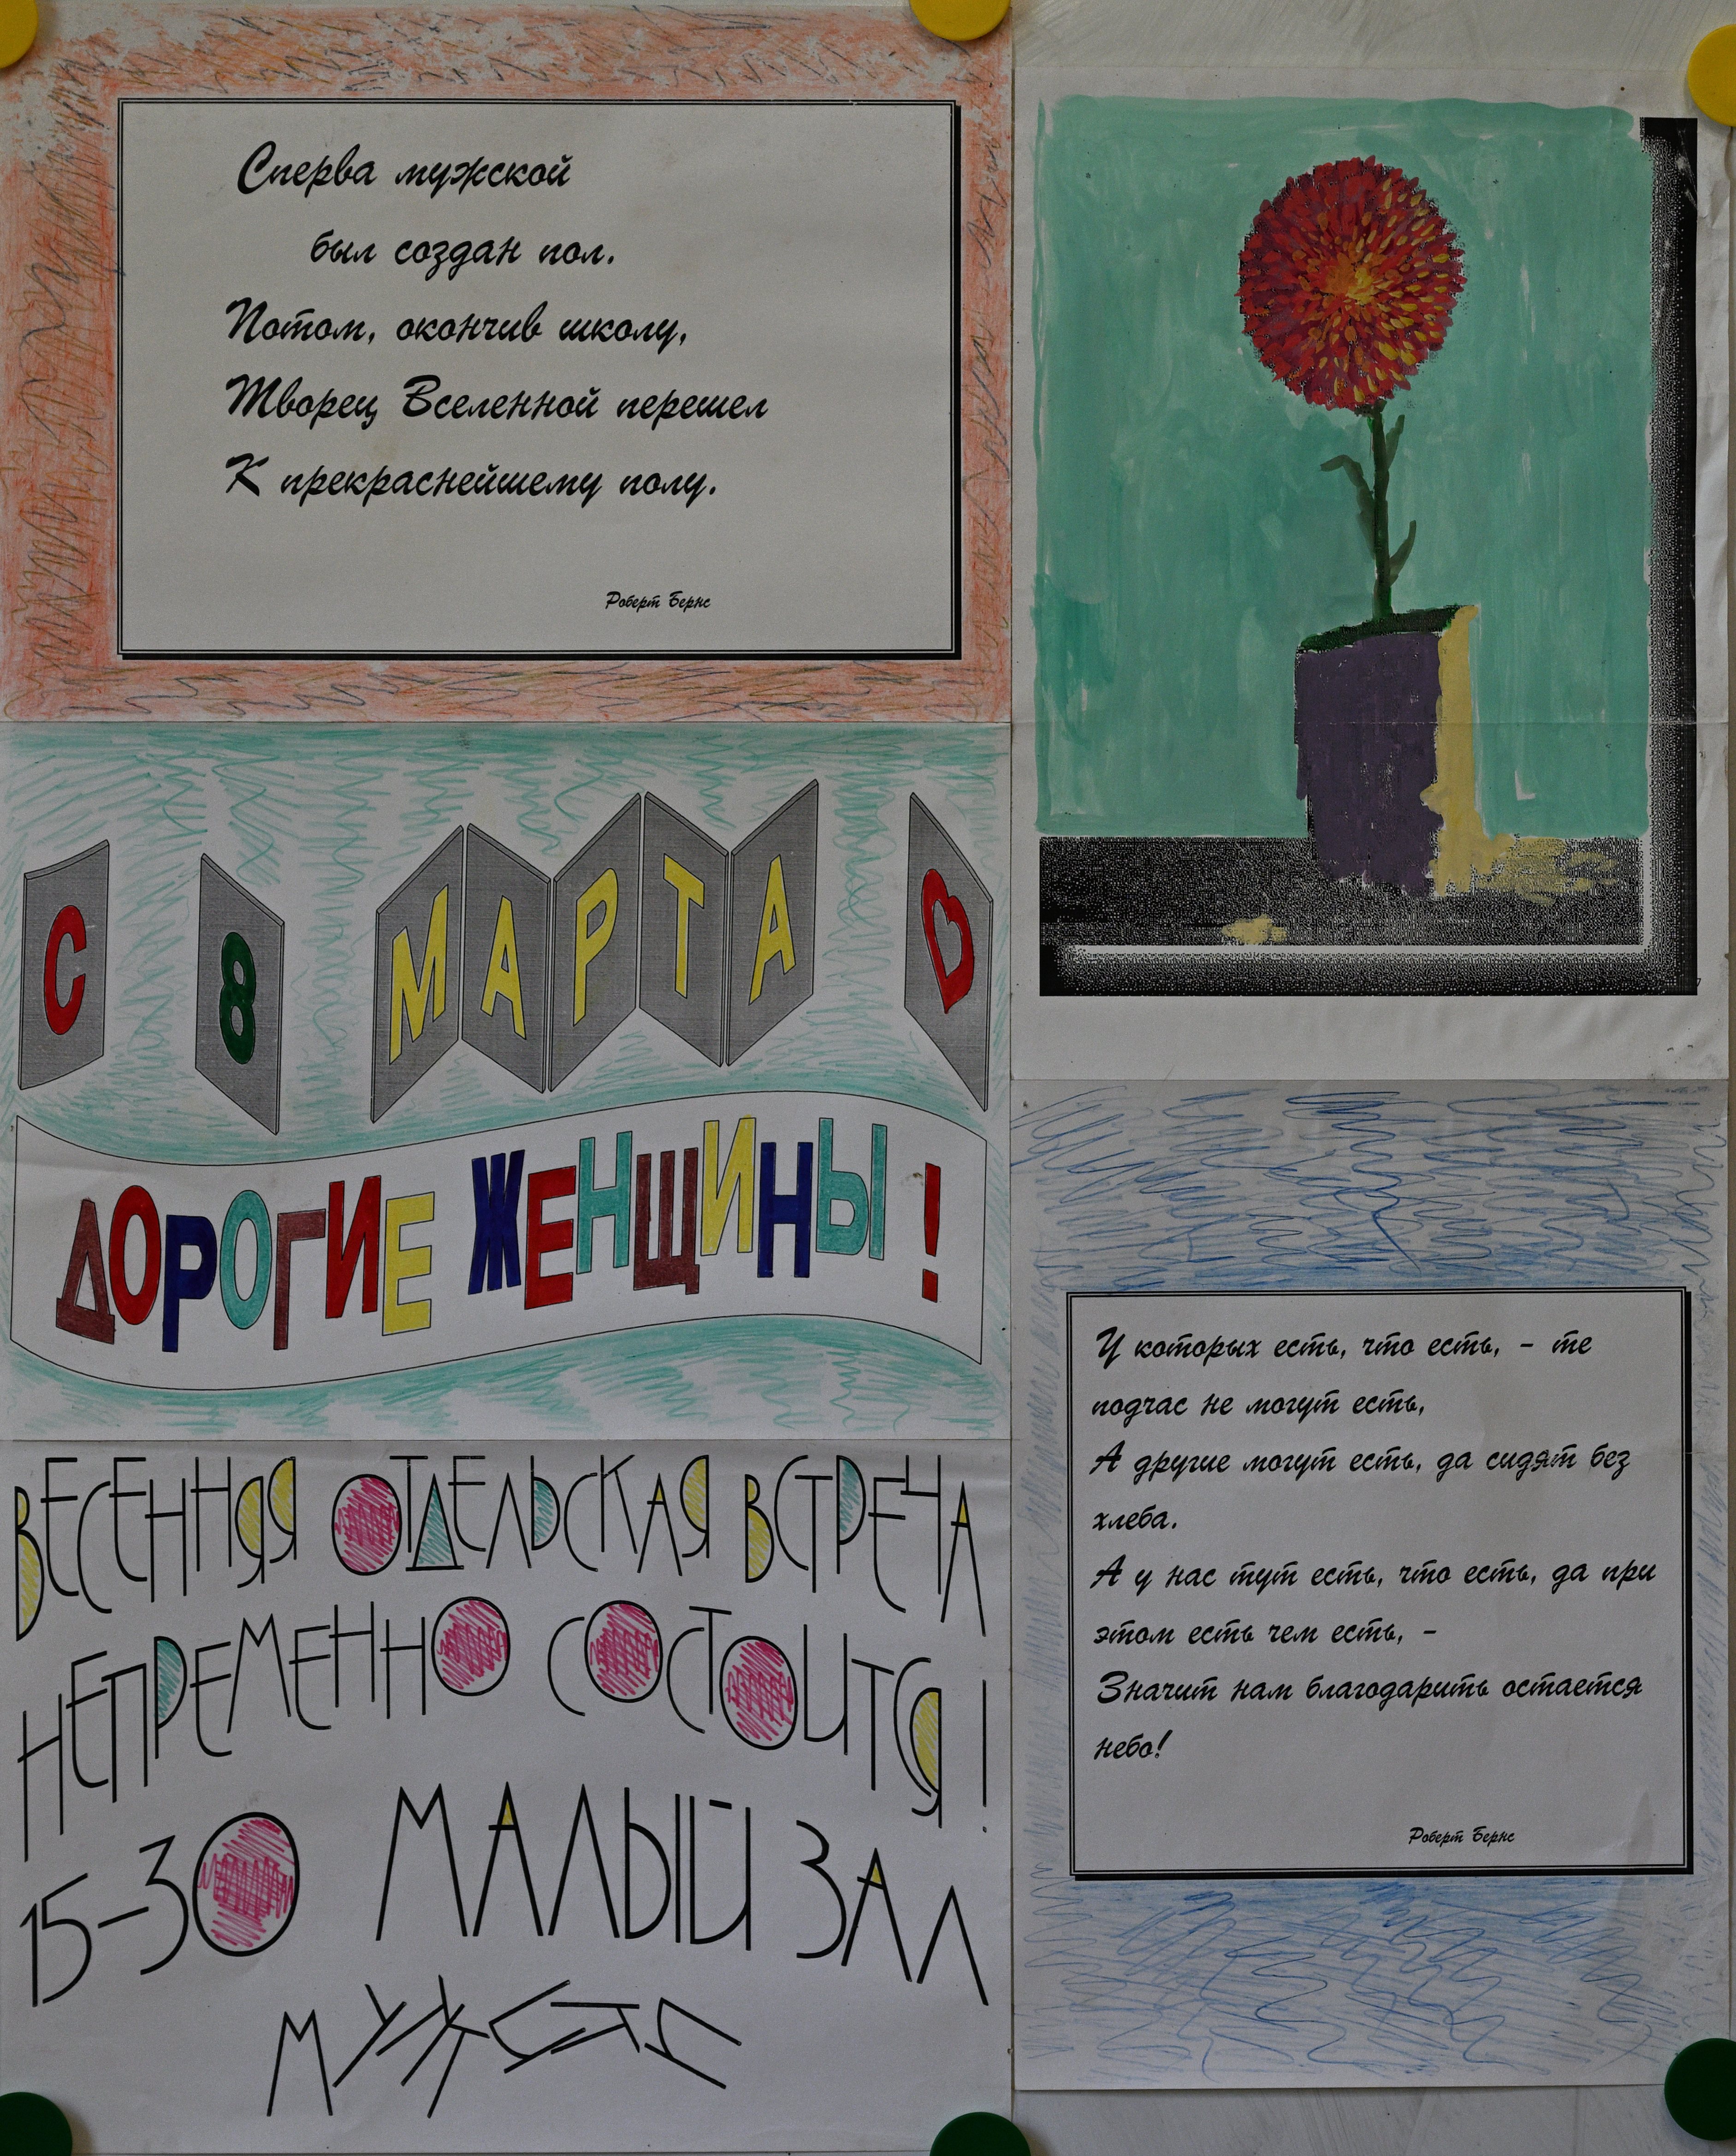 Сперва мужской
был создан пол.
Потом, окончив школу,
Творец Вселенной перешел
К прекраснейшему полу.
Роберт Бернс
С 8 МАРТА
ДОРОГИЕ ЖЕНЩИНЫ!
ВЕСЕННЯЯ ОТДЕЛЬСКАЯ ВСТРЕЧА
НЕПРЕМЕННО СОСТОИТСЯ!
15-30 МАЛЫЙ ЗАЛ
У которых есть, что есть, - те
подчас не могут есть,
А другие могут есть, да сидят без
хлеба.
А у нас тут есть, что есть, да при
этом есть чем есть, -
Значит нам благодарить остается
небо!
Роберт Бернс